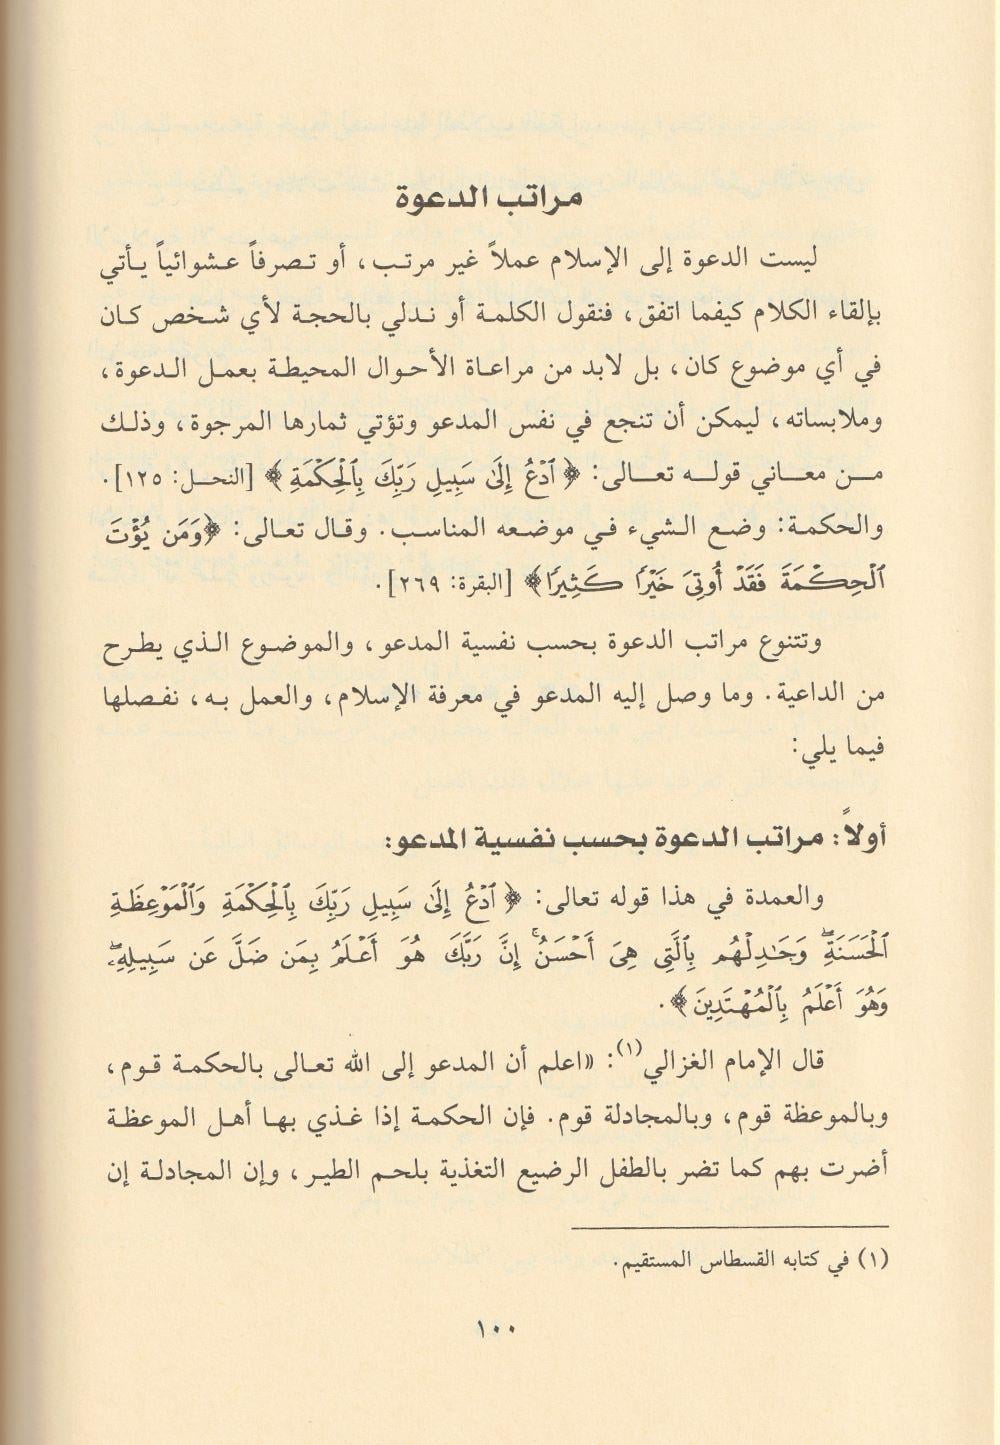 مراتب الدعوة
ليست الدعوة إلى الإسلام عملاً غير مرتب، أو تصرفاً عشوائياً يأتي
بإلقاء الكلام كيفما اتفق، فنقول الكلمة أو ندلي بالحجة لأي شخص كان
في أي موضوع كان، بل لابد من مراعاة الأحوال المحيطة بعمل الدعوة،
وملابساته، ليمكن أن تنجع في نفس المدعو وتؤتي ثمارها المرجوة، وذلك
من معاني قوله تعالى: ﴿ٱدْعُ إِلَىٰ سَبِيلِ رَبِّكَ بِٱلْحِكْمَةِ﴾ [النحل: ١٢٥].
والحكمة: وضع الشيء في موضعه المناسب. وقال تعالى: ﴿وَمَن يُؤْتَ
ٱلْحِكْمَةَ فَقَدْ أُوتِىَ خَيْرًا كَثِيرًا﴾ [البقرة: ٢٦٩].
وتتنوع مراتب الدعوة بحسب نفسية المدعو، والموضوع الذي يطرح
من الداعية. وما وصل إليه المدعو في معرفة الإسلام، والعمل به، نفصلها
فيما يلي:
أولاً: مراتب الدعوة بحسب نفسية المدعو:
والعمدة في هذا قوله تعالى: ﴿ٱدْعُ إِلَىٰ سَبِيلِ رَبِّكَ بِٱلْحِكْمَةِ وَٱلْمَوْعِظَةِ
ٱلْحَسَنَةِۖ وَجَٰدِلْهُم بِٱلَّتِى هِىَ أَحْسَنُۚ إِنَّ رَبَّكَ هُوَ أَعْلَمُ بِمَن ضَلَّ عَن سَبِيلِهِۦۖ
وَهُوَ أَعْلَمُ بِٱلْمُهْتَدِينَ﴾.
قال الإمام الغزالي(١): «اعلم أن المدعو إلى الله تعالى بالحكمة قوم،
وبالموعظة قوم، وبالمجادلة قوم. فإن الحكمة إذا غذي بها أهل الموعظة
أضرت بهم كما تضر بالطفل الرضيع التغذية بلحم الطير، وإن المجادلة إن
(١) في كتابه القسطاس المستقيم.
١٠٠